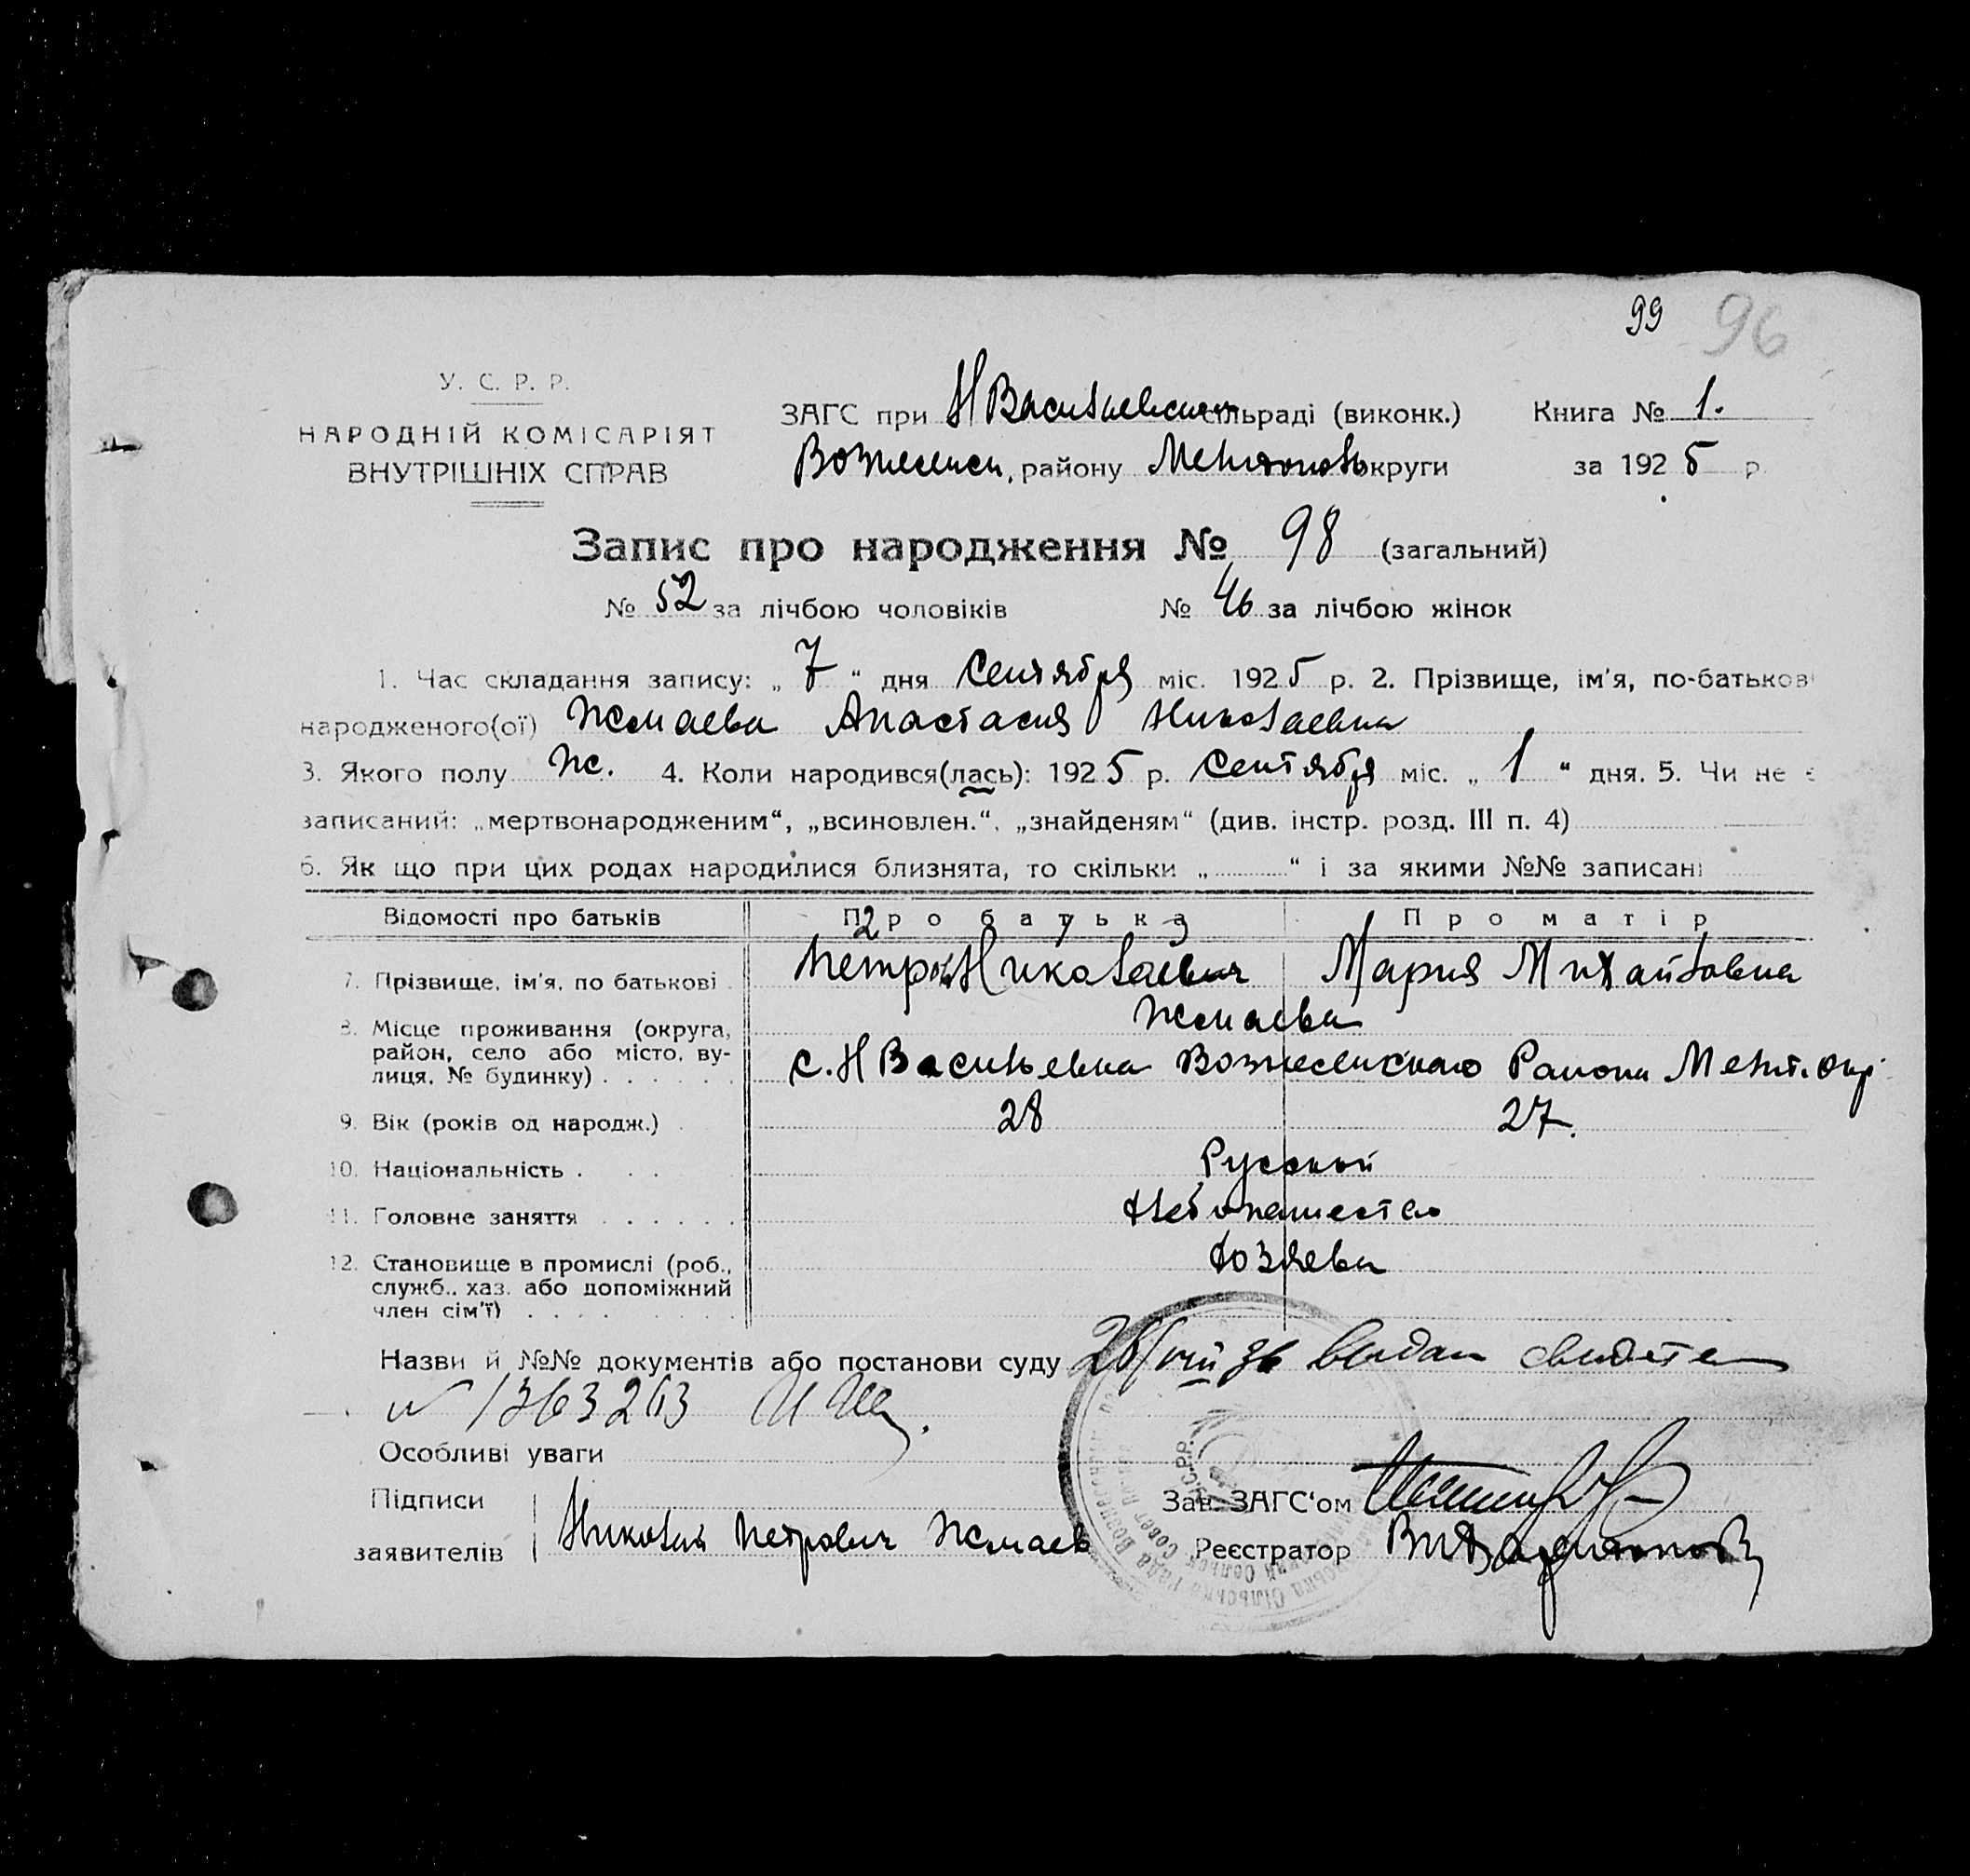 99 96
У. С. Р. Р.
НАРОДНІЙ КОМІСАРІЯТ
ВНУТРІШНІХ СПРАВ
ЗАГС при Н Васильевском сільраді (виконк.) Книга № 1.
Вознесенск. району Мелитопольс округи за 1925 р.
Запис про народження № 98 (загальний)
№ 52 за лічбою чоловіків № 46 за лічбою жінок
1. Час складання запису: „ 7 “ дня Сентября міс. 1925 р. 2. Прізвище, ім'я, по-батькові
народженого(ої) Жмаева Анастасия Николаевна
3. Якого полу ж. 4. Коли народився(лась): 1925 р. Сентября міс. „ 1 “ дня. 5. Чи не є
записаний: „мертвонародженим“, „всиновлен.“, „знайденям“ (див. інстр. розд. III п. 4)
6. Як що при цих родах народилися близнята, то скільки „ “ і за якими №№ записані
Відомості про батьків Про батька Про матір
2
7. Прізвище, ім'я, по батькові Николаевич Мария Михайловна
Жмаева
8. Місце проживання (округа,
район, село або місто, ву-
лиця, № будинку) с. Н Васильевка Вознесенского Района Мелит. окр
9. Вік (років од народж.) 28 27.
10. Національність Русский
11. Головне заняття Хлебопашество
12. Становище в промислі (роб.,
служб., хаз. або допоміжний
член сім'ї) Хозяева
Назви й №№ документів або постанови суду выдан свидетел
№ 1363263
Особливі уваги
Підписи
заявителів Николай Петрович Жмаев
Зав. ЗАГС'ом
Реєстратор
У.С.Р.Р.